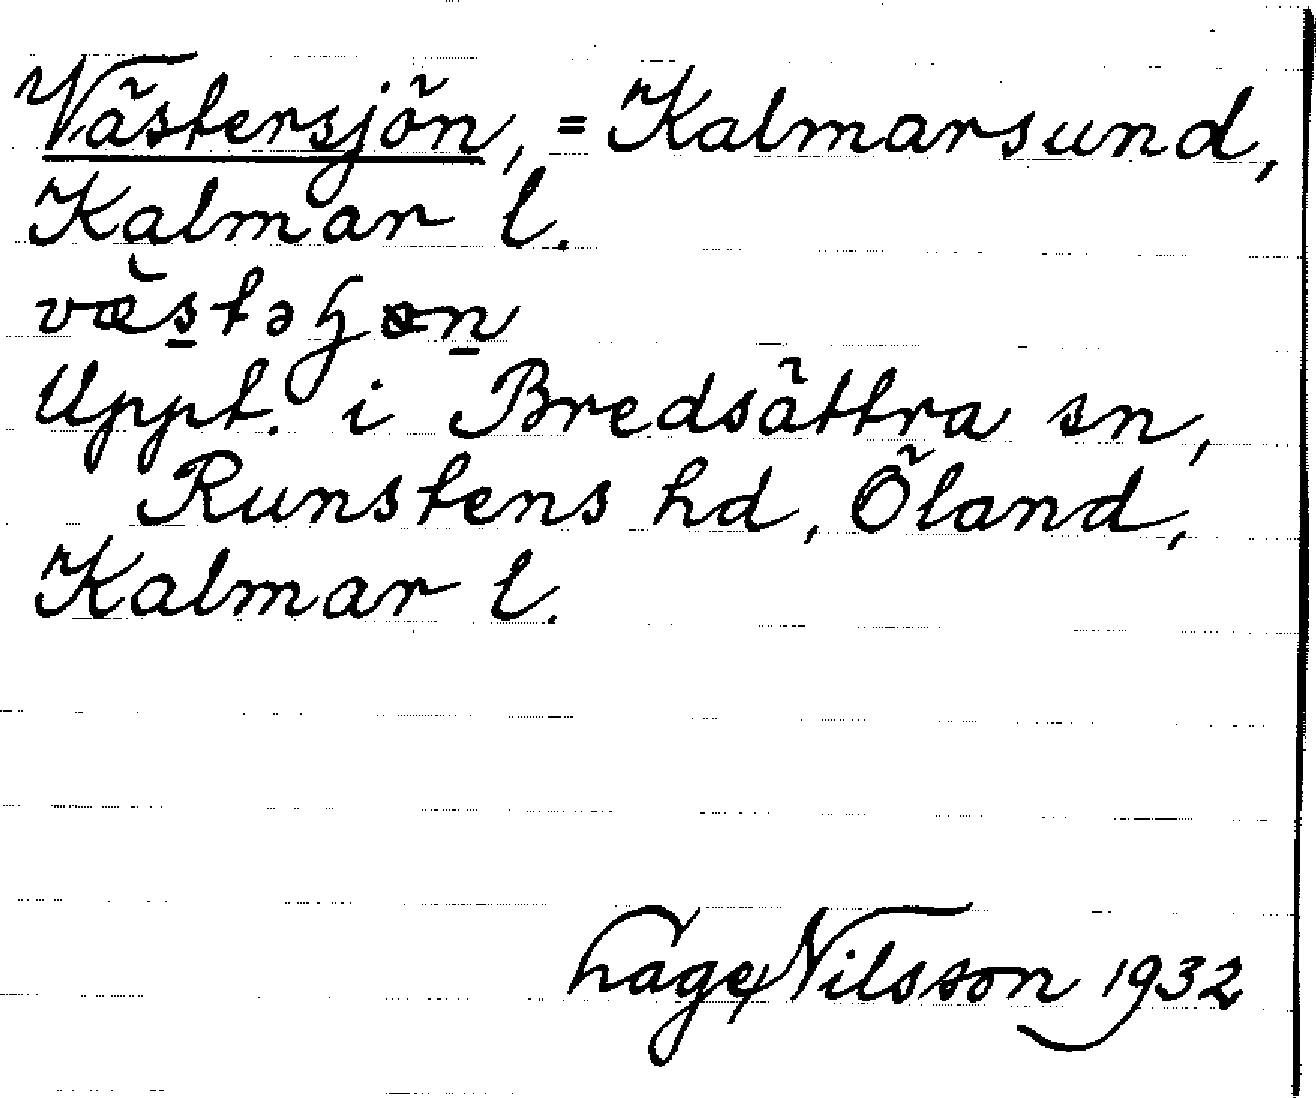 Västersjön, = Kalmarsund,
Kalmar l.
Uppt. i Bredsättra sn,
Runstens hd, Öland,
Kalmar l.
Nilsson 1932